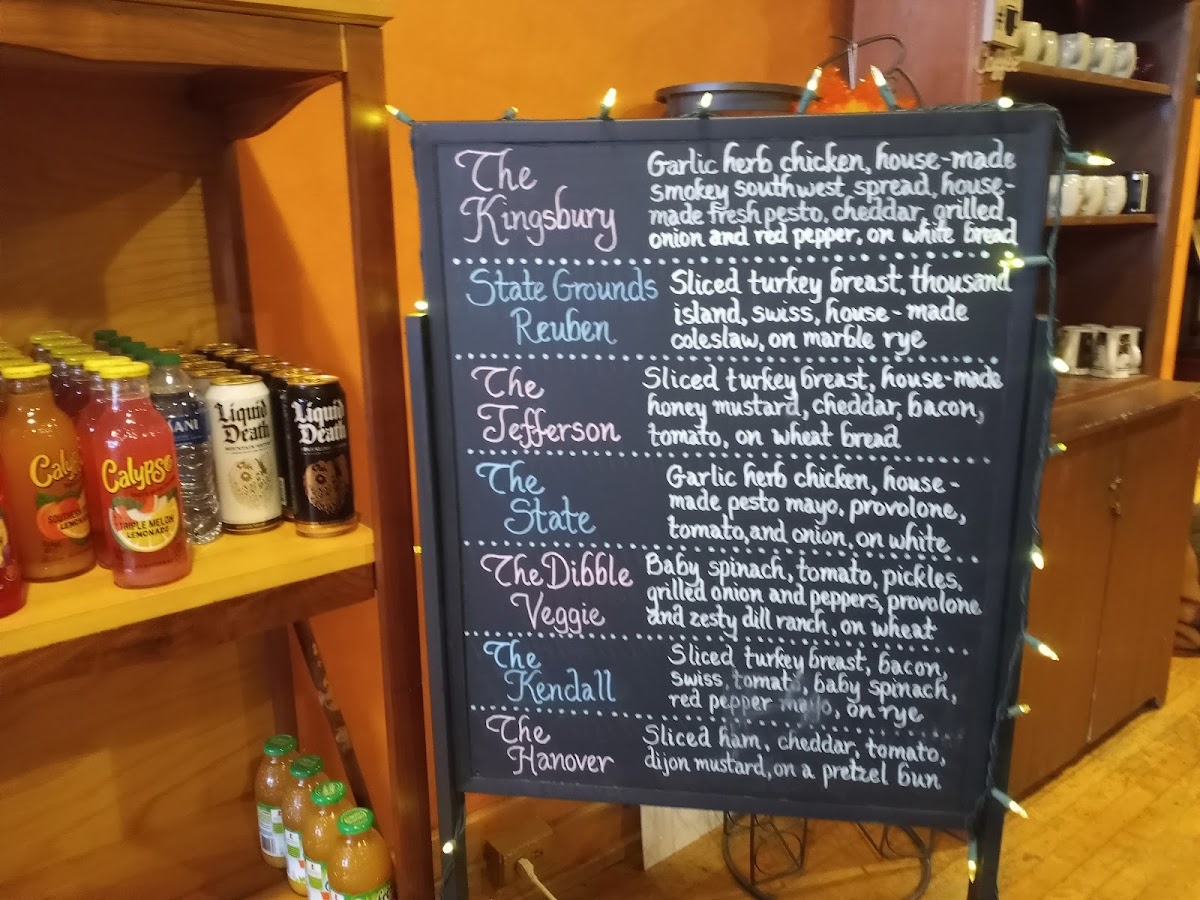 The
Kingsbury
Garlic herb chicken, house-made
smokey southwest spread, house-
made fresh pesto, cheddar, grilled
onion and red pepper, on white bread
State Grounds
Reuben
Sliced turkey breast, thousand
island, swiss, house-made
coleslaw, on marble rye
The
Jefferson
Sliced turkey breast, house-made
honey mustard, cheddar, bacon,
tomato, on wheat bread
The
State
Garlic herb chicken, house-
made pesto mayo, provolone,
tomato, and onion, on white
The Dibble
Veggie
Baby spinach, tomato, pickles,
grilled onion and peppers, provolone
and zesty dill ranch, on wheat
The
Kendall
Sliced turkey breast, bacon,
swiss, tomato, baby spinach,
red pepper mayo, on rye
The
Hanover
Sliced ham, cheddar, tomato,
dijon mustard, on a pretzel bun
Calypso
LEMONADE
Calypso
TRIPLE MELON
LEMONADE
Liquid
Death
Liquid
Death